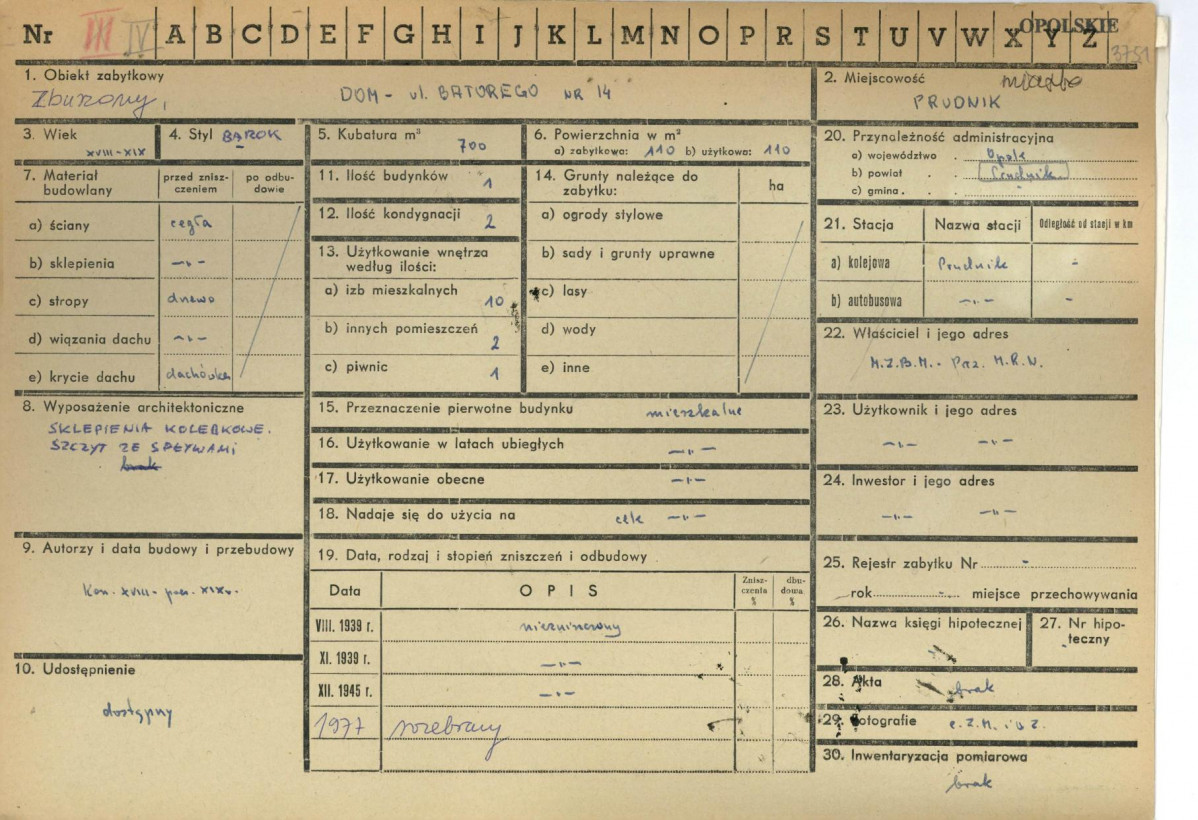 Nr III IV A B C D E F G H I J K L M N O P R S T U V W X Y Z OPOLSKIE
3751
1. Obiekt zabytkowy
Zburzony, DOM - ul. BATOREGO NR 14
2. Miejscowość miasto
PRUDNIK
3. Wiek
XVIII-XIX
4. Styl BAROK
5. Kubatura m³
700
6. Powierzchnia w m²
a) zabytkowa: 110 b) użytkowa: 110
7. Materiał budowlany
przed zniszczeniem
po odbudowie
a) ściany cegła
b) sklepienia -"-
c) stropy drewo
d) wiązania dachu -"-
e) krycie dachu dachówka
8. Wyposażenie architektoniczne
SKLEPIENIA KOLEBKOWE.
SZCZYT ZE SPŁYWAMI
brak
9. Autorzy i data budowy i przebudowy
Kon. XVIII - pocz. XIX w.
10. Udostępnienie
dostępny
11. Ilość budynków 1
12. Ilość kondygnacji 2
13. Użytkowanie wnętrza
według ilości:
a) izb mieszkalnych 10
b) innych pomieszczeń 2
c) piwnic 1
14. Grunty należące do
zabytku:
ha
a) ogrody stylowe
b) sady i grunty uprawne
c) lasy
d) wody
e) inne
15. Przeznaczenie pierwotne budynku mieszkalne
16. Użytkowanie w latach ubiegłych -"-
17. Użytkowanie obecne -"-
18. Nadaje się do użycia na cele -"-
19. Data, rodzaj i stopień zniszczeń i odbudowy
Data
OPIS
Zniszczenia %
dbudowa %
VIII. 1939 r. niezniszczony
XI. 1939 r. -"-
XII. 1945 r. -"-
1977 rozebrany
20. Przynależność administracyjna
a) województwo Opole
b) powiat Prudnik
c) gmina -
21. Stacja
Nazwa stacji
Odległość od stacji w km
a) kolejowa Prudnik -
b) autobusowa -"- -
22. Właściciel i jego adres
M.Z.B.M. - Prz. M.R.N.
23. Użytkownik i jego adres
-"- -"-
24. Inwestor i jego adres
-"- -"-
25. Rejestr zabytku Nr -
rok - miejsce przechowywania
26. Nazwa księgi hipotecznej
27. Nr hipoteczny
28. Akta brak
29. Fotografie c.Z.M. i O Z.
30. Inwentaryzacja pomiarowa
brak